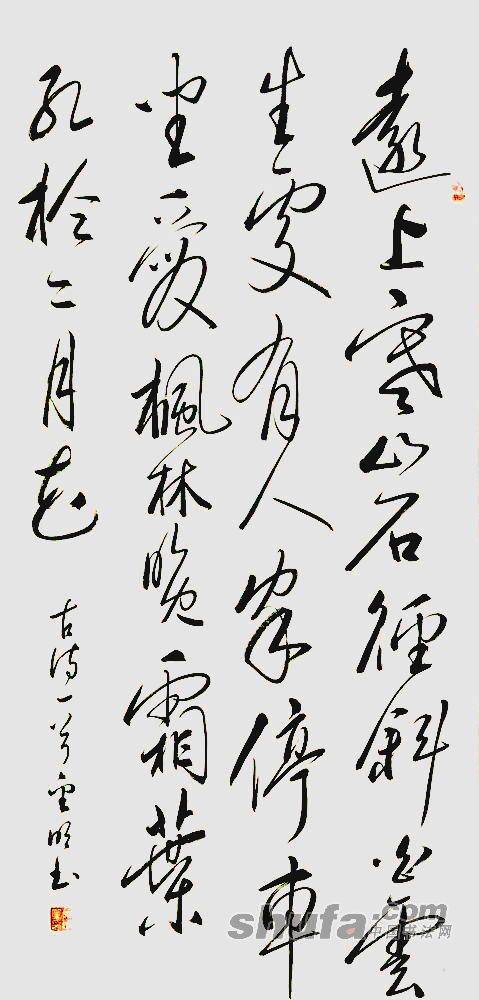 遠上寒山石徑斜白雲
生處有人家停車
坐愛楓林晚霜葉
紅於二月花
古詩一首雲明书
shufa.com
中国书法网